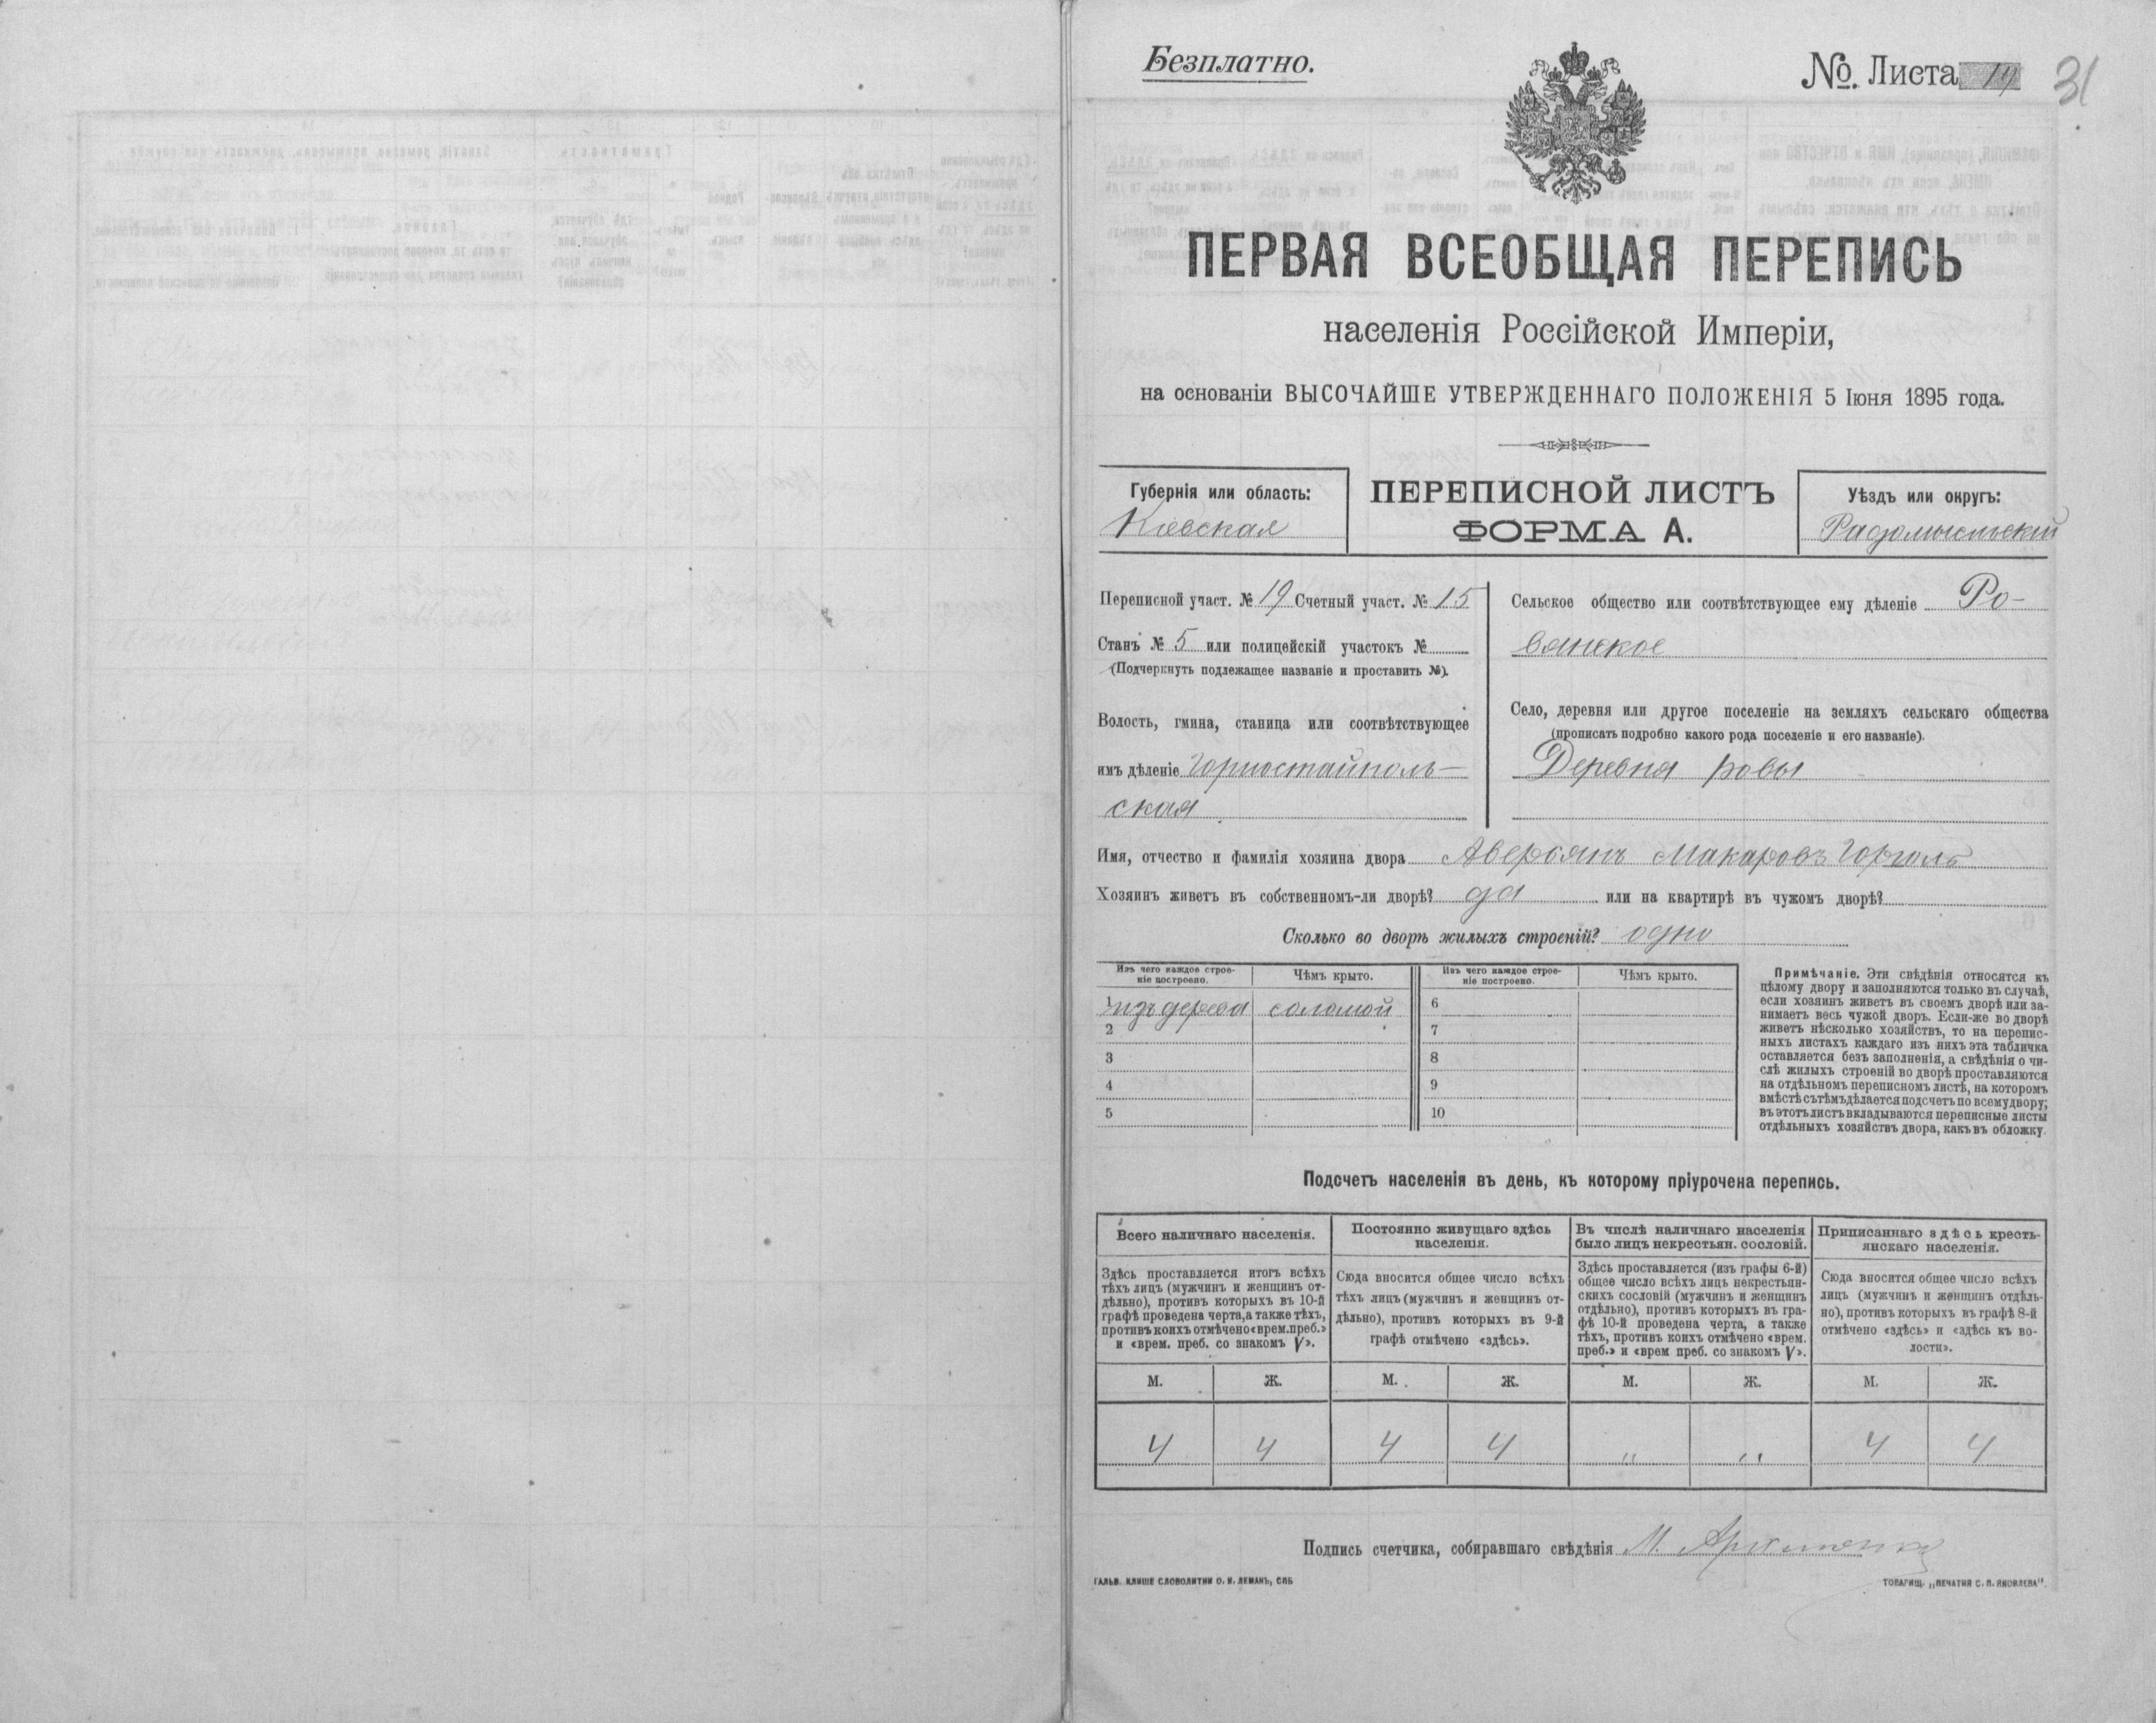 Безплатно.
№. Листа 19
31
ПЕРВАЯ ВСЕОБЩАЯ ПЕРЕПИСЬ
населенія Россійской Имперіи,
на основаніи ВЫСОЧАЙШЕ УТВЕРЖДЕННАГО ПОЛОЖЕНІЯ 5 Іюня 1895 года.
Губернія или область:
Кіевская
ПЕРЕПИСНОЙ ЛИСТЪ
ФОРМА А.
Уѣздъ или округъ:
Радомысльскій
Переписной участ. № 19 Счетный участ. № 15
Станъ № 5 или полицейскій участокъ №
(Подчеркнуть подлежащее названіе и проставить №).
Волость, гмина, станица или соотвѣтствующее
имъ дѣленіе Горностайполь-
ская
Сельское общество или соотвѣтствующее ему дѣленіе Ро-
вянское
Село, деревня или другое поселеніе на земляхъ сельскаго общества
(прописать подробно какого рода поселеніе и его названіе).
Деревня Ровы
Имя, отчество и фамилія хозяина двора Аверьянъ Макаровъ Горголь
Хозяинъ живетъ въ собственномъ-ли дворѣ? да или на квартирѣ въ чужомъ дворѣ?
Сколько во дворѣ жилыхъ строеній? одно
Изъ чего каждое строе-
ніе построено.
Чѣмъ крыто.
Изъ чего каждое строе-
ніе построено.
Чѣмъ крыто.
1 изъ дерева соломой 6
2 7
3 8
4 9
5 10
Примѣчаніе. Эти свѣдѣнія относятся къ
цѣлому двору и заполняются только въ случаѣ,
если хозяинъ живетъ въ своемъ дворѣ или за-
нимаетъ весь чужой дворъ. Если-же во дворѣ
живетъ нѣсколько хозяйствъ, то на перепис-
ныхъ листахъ каждаго изъ нихъ эта табличка
оставляется безъ заполненія, а свѣдѣнія о чи-
слѣ жилыхъ строеній во дворѣ проставляются
на отдѣльномъ переписномъ листѣ, на которомъ
вмѣстѣ съ тѣмъ дѣлается подсчетъ по всему двору;
въ этотъ листъ вкладываются переписные листы
отдѣльныхъ хозяйствъ двора, какъ въ обложку.
Подсчетъ населенія въ день, къ которому пріурочена перепись.
Всего наличнаго населенія.
Здѣсь проставляется итогъ всѣхъ
тѣхъ лицъ (мужчинъ и женщинъ от-
дѣльно), противъ которыхъ въ 10-й
графѣ проведена черта, а также тѣхъ,
противъ коихъ отмѣчено «врем. преб.»
и «врем. преб. со знакомъ V».
Постоянно живущаго здѣсь
населенія.
Сюда вносится общее число всѣхъ
тѣхъ лицъ (мужчинъ и женщинъ от-
дѣльно), противъ которыхъ въ 9-й
графѣ отмѣчено «здѣсь».
Въ числѣ наличнаго населенія
было лицъ некрестьян. сословій.
Здѣсь проставляется (изъ графы 6-й)
общее число всѣхъ лицъ некрестьян-
скихъ сословій (мужчинъ и женщинъ
отдѣльно), противъ которыхъ въ гра-
фѣ 10-й проведена черта, а также
тѣхъ, противъ коихъ отмѣчено «врем.
преб.» и «врем преб. со знакомъ V».
Приписаннаго здѣсь кресть-
янскаго населенія.
Сюда вносится общее число всѣхъ
лицъ (мужчинъ и женщинъ отдѣль-
но), противъ которыхъ въ графѣ 8-й
отмѣчено «здѣсь» и «здѣсь къ во-
лости».
М. Ж. М. Ж. М. Ж. М. Ж.
4 4 4 4 " " 4 4
Подпись счетчика, собиравшаго свѣдѣнія М.
ГАЛЬВ. КЛИШЕ СЛОВОЛИТНИ О. И. ЛЕМАНЪ, СПБ
ТОВАРИЩ. „ПЕЧАТНЯ С. П. ЯКОВЛЕВА".